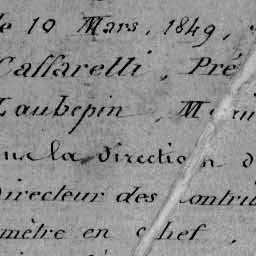 le 10 Mars, 1849,
Caffarelli, Pré
Laubepin, M
la direction d
Directeur des Contri
mètre en chef.